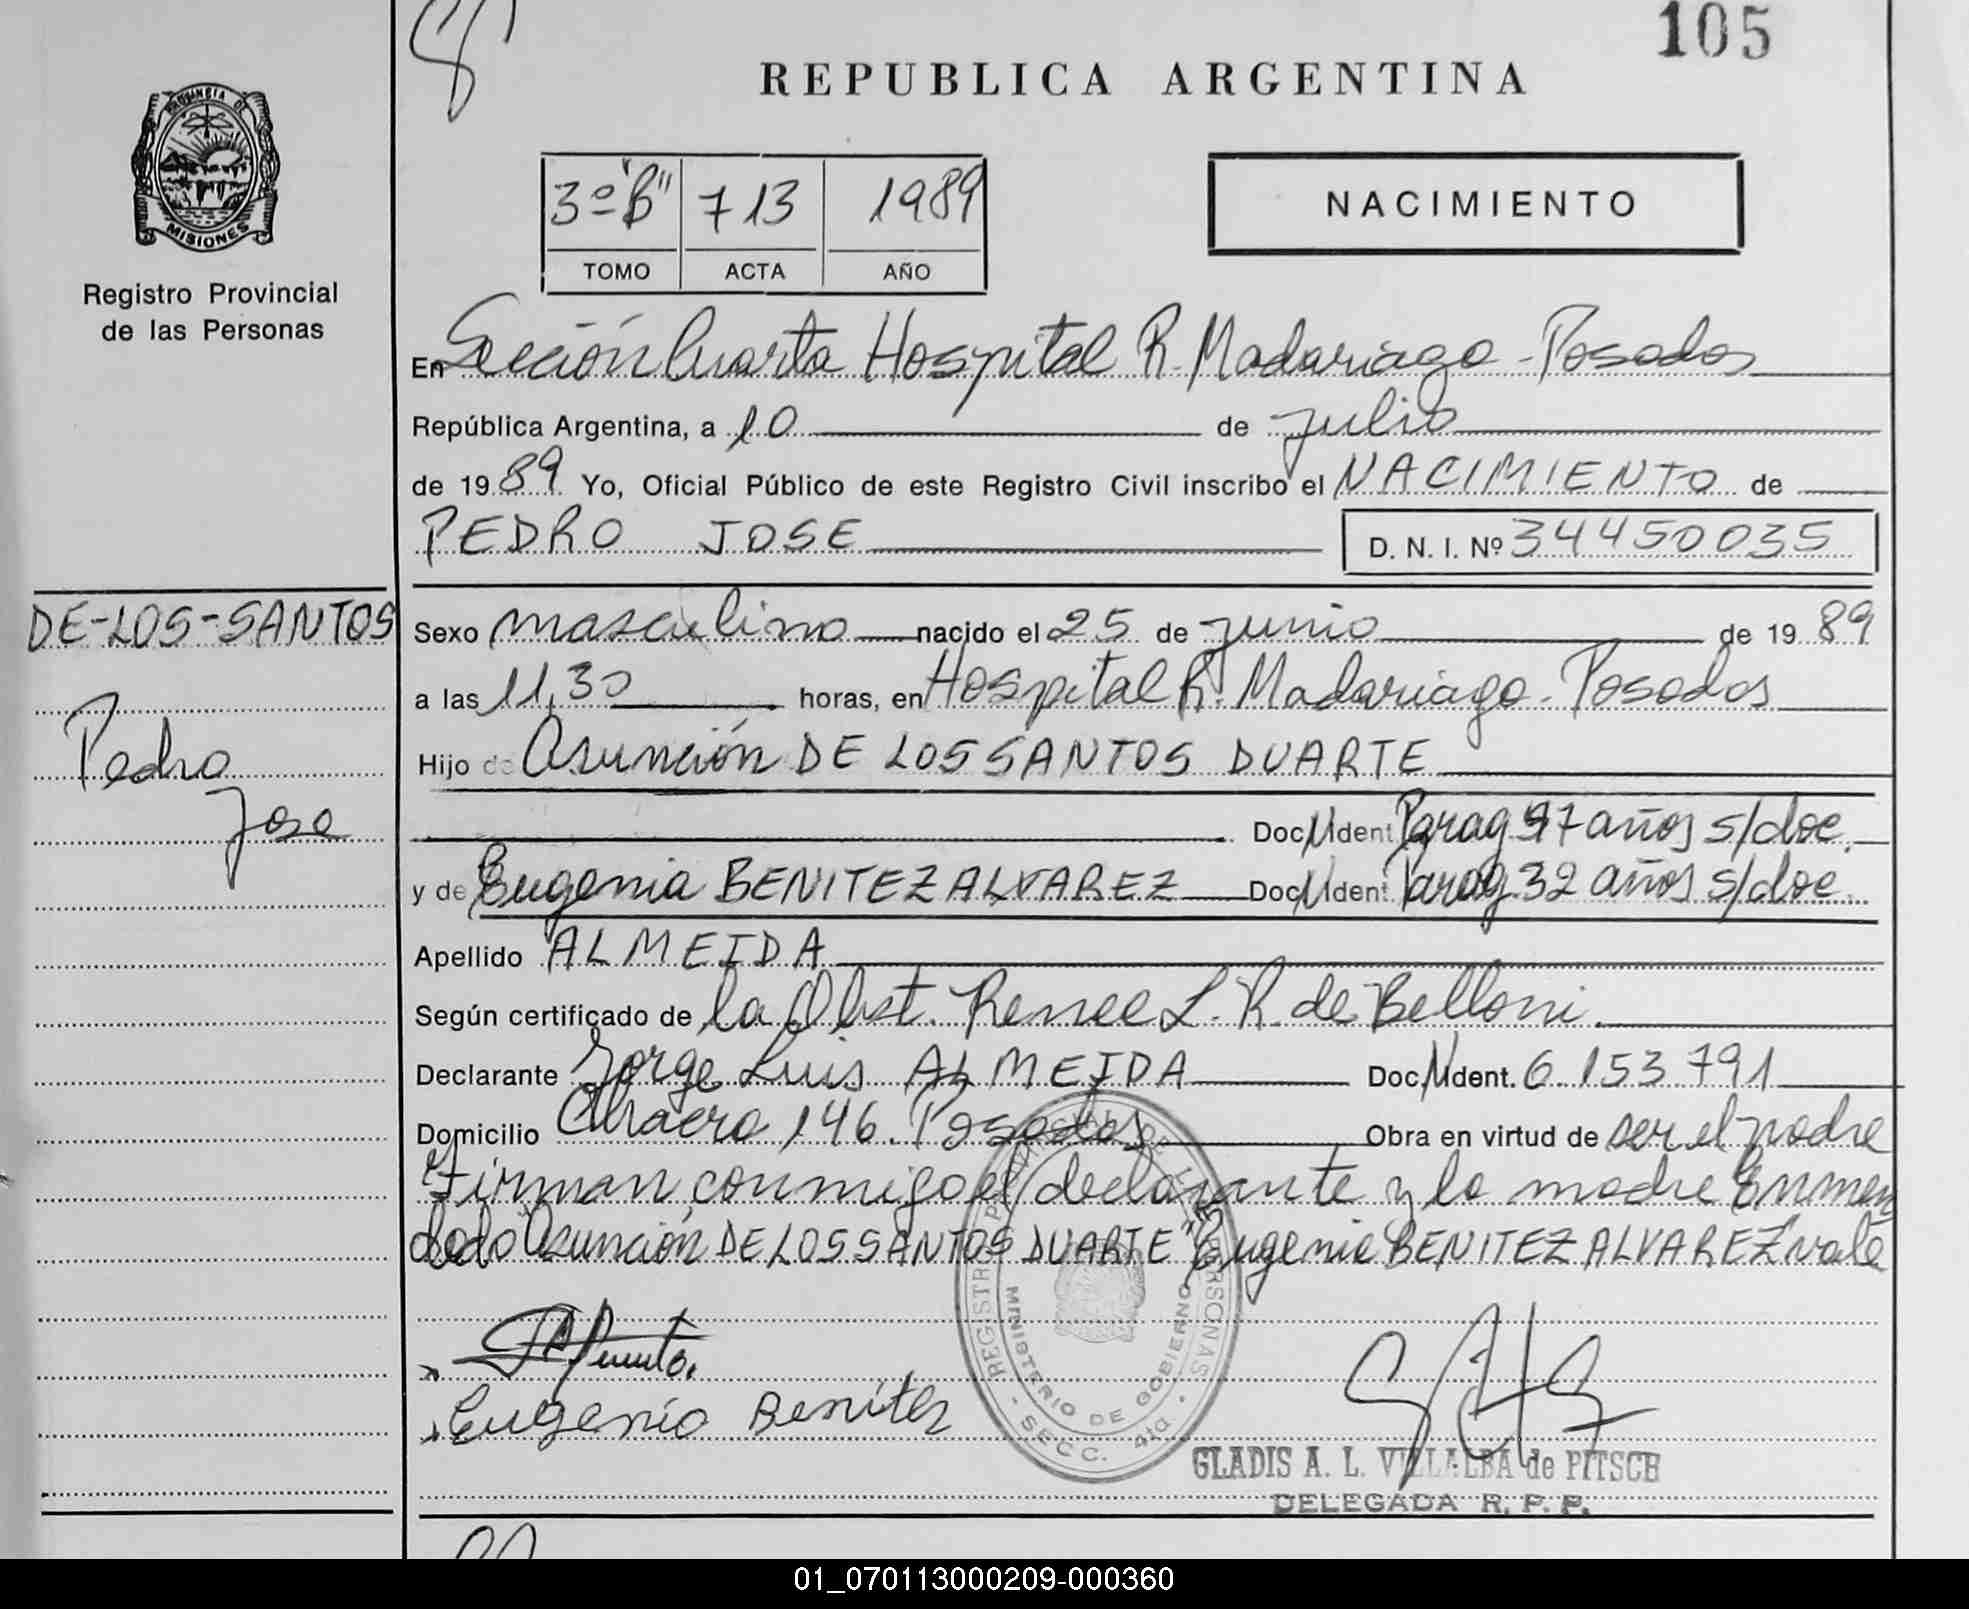 105
REPUBLICA ARGENTINA
PROVINCIA DE
MISIONES
Registro Provincial
de las Personas
3º "B" 713 1989
TOMO ACTA AÑO
NACIMIENTO
En Sección Cuarta Hospital R. Madariaga - Posadas
República Argentina, a 10 de julio
de 1989 Yo, Oficial Público de este Registro Civil inscribo el NACIMIENTO de
PEDRO JOSE D. N. I. Nº 34450035
DE-LOS-SANTOS
Pedro
Jose
Sexo masculino nacido el 25 de junio de 1989
a las 11,30 horas, en Hospital R. Madariaga. Posadas
Hijo de Asunción DE LOS SANTOS DUARTE
Doc. Ident. Parag 37 años s/doc.
y de Eugenia BENITEZ ALVAREZ Doc. Ident. Parag 32 años s/doc.
Apellido ALMEIDA
Según certificado de la Obst. Renee L. R. de Belloni.
Declarante Jorge Luis ALMEIDA Doc. Ident. 6.153.791
Domicilio 146. Posadas Obra en virtud de ser el padre
Firman conmigo el declarante y la madre Enmen
dado "Asunción DE LOS SANTOS DUARTE" "Eugenia BENITEZ ALVAREZ" vale
Eugenia Benitez
REGISTRO PROVINCIAL DE LAS PERSONAS
MINISTERIO DE GOBIERNO
SECC. 4ta
GLADIS A. L. VILLALBA de PITSCH
DELEGADA R. P. P.
01_070113000209-000360